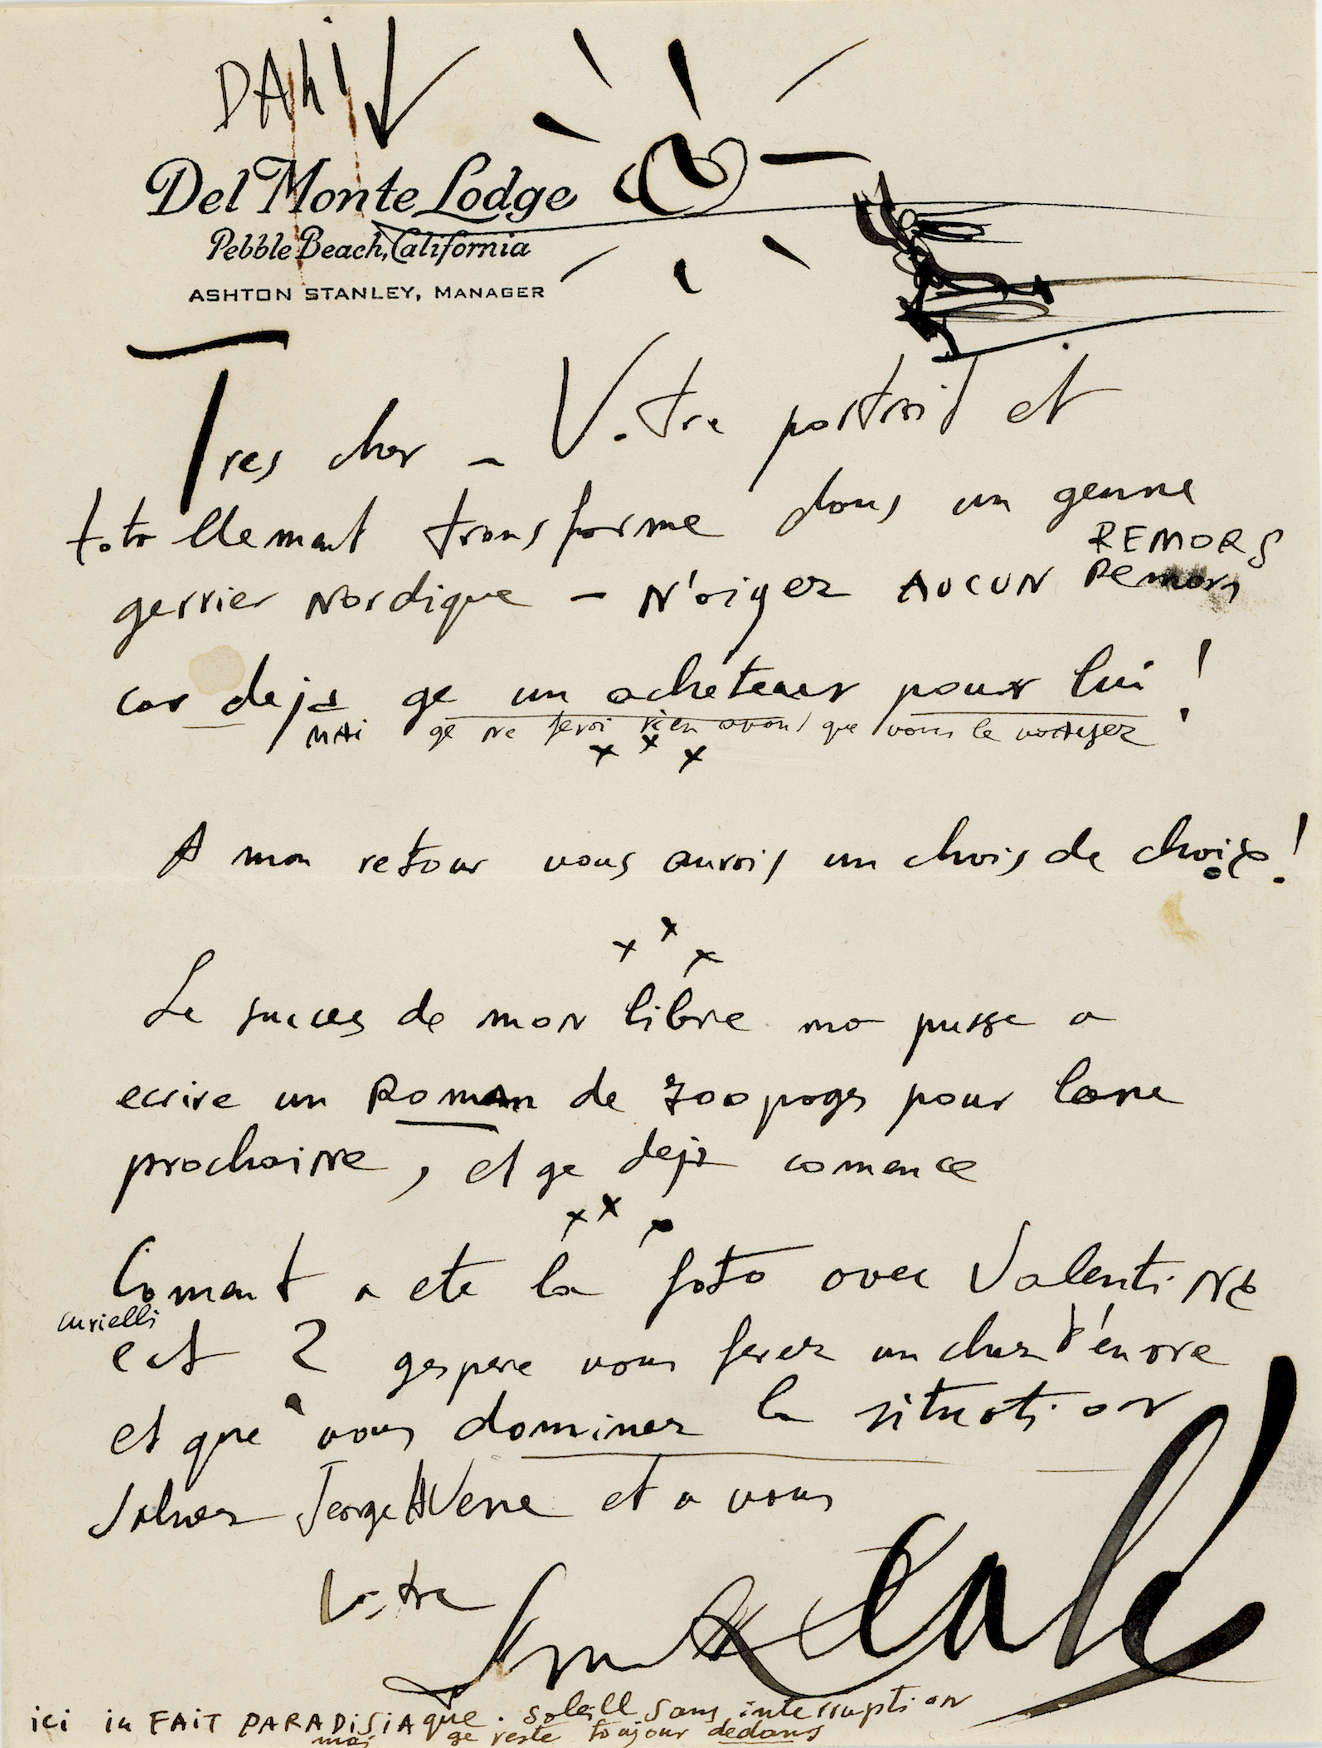 DAhi
Del Monte Lodge
Pebble Beach, California
ASHTON STANLEY, MANAGER
Tres cher – Votre portrait et
totallement transforme dans un genne
REMORS
gerrier Nordique – N'aiyez AUCUN Remors
car deja ge un acheteaur pour lui !
mai ge ne ferai rien avant que vous le voiyez
x x x
A mon retour vous aurais un chois de choix !
x x x
Le succes de mon libre ma pusse a
ecrire un Roman de 300 pages pour lane
prochaine, et ge deja comence
x x x
Coment a ete la foto avec Valentine
curielli
ect ? gespere vous ferez un chez d'énvre
et que vous dominez la situation
Saluez et a vous
Votre
Dali
ici iu FAIT PARADISIAque . soleill sans interruption
mai ge reste toujour dedans